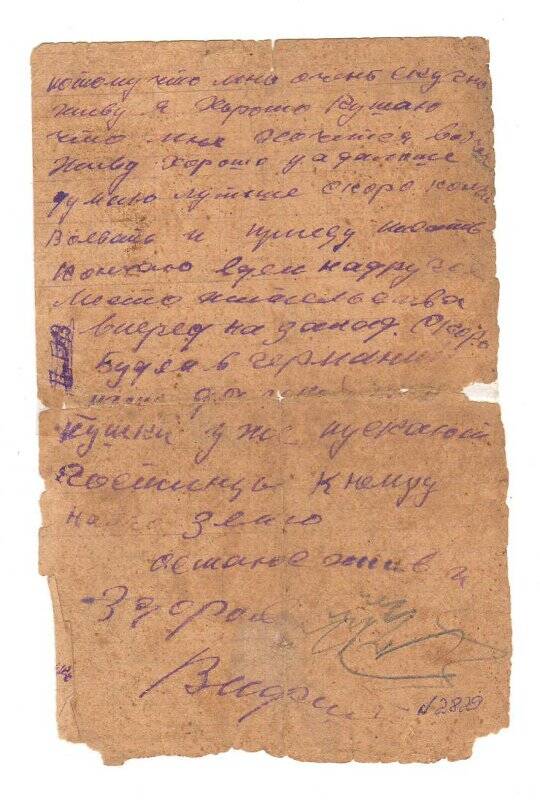 потому что мне очень скучно
живу я хорошо Кушаю
что мне хочется
Живу хорошо а дальше
думаю лутше скоро
Воевать и приеду писать
Кончаю едем на другое
место жительства
вперед на запад. Скоро
Будем в германии
наши
пушки уже пускают
Гостинцы к нему
на его землю
остаюс жив и
Здоров
№2829